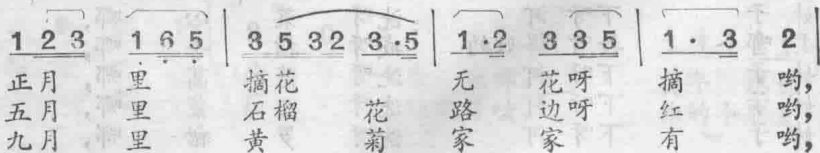 1 2 3 1 6 5 | 3 5 3 2 3 · 5 | 1 · 2 3 3 5 | 1 · 3 2 |
正月 里 摘花 无 花呀 摘 哟,
五月 里 石榴 花 路 边呀 红 哟,
九月 里 黄 菊 家 家 有 哟,